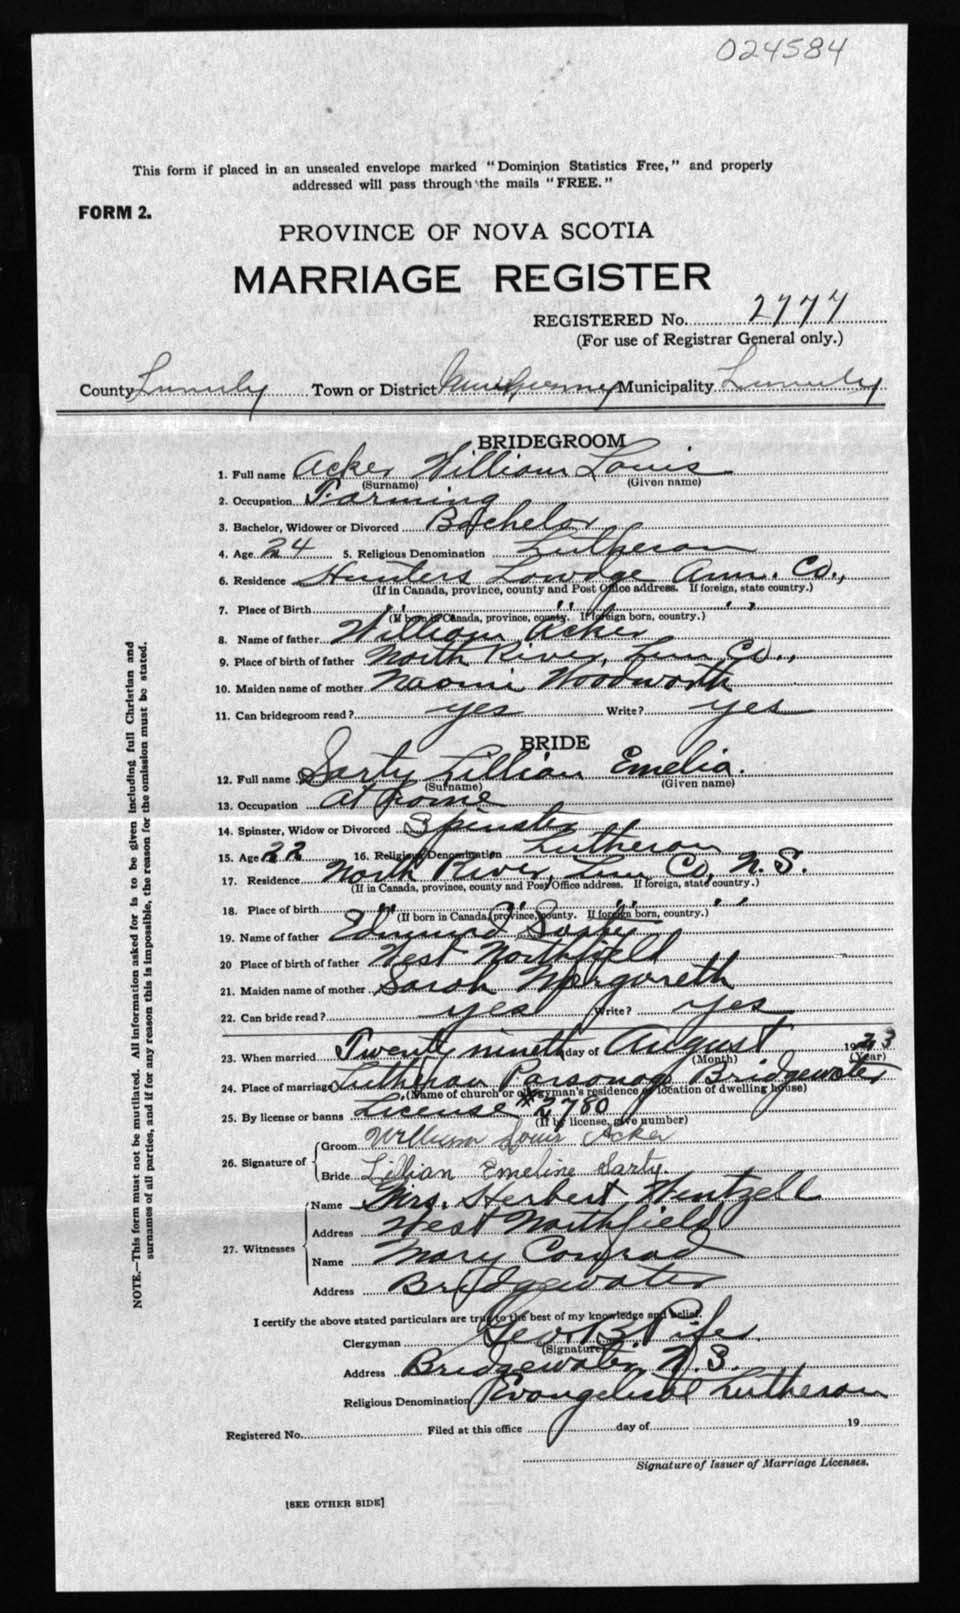 024584
This form if placed in an unsealed envelope marked "Dominion Statistics Free," and properly
addressed will pass through the mails "FREE."
FORM 2.
PROVINCE OF NOVA SCOTIA
MARRIAGE REGISTER
REGISTERED No. 2777
(For use of Registrar General only.)
County Town or District Municipality
BRIDEGROOM
1. Full name Acker William Louis
(Surname) (Given name)
2. Occupation Farming
3. Bachelor, Widower or Divorced Bachelor
4. Age 24 5. Religious Denomination Lutheran
6. Residence Hunters Lowdge Ann. Co.,
(If in Canada, province, county and Post Office address. If foreign, state country.)
7. Place of Birth " " "
(If born in Canada, province, county. If foreign born, country.)
8. Name of father William Acker
9. Place of birth of father North River, Lun Co.,
10. Maiden name of mother Naomi Woodworth
11. Can bridegroom read? yes Write? yes
BRIDE
12. Full name Sarty Lillian Emelia.
(Surname) (Given name)
13. Occupation At home
14. Spinster, Widow or Divorced Spinster
15. Age 22 16. Religious Denomination Lutheran
17. Residence North River, Lun Co, N.S.
(If in Canada, province, county and Post Office address. If foreign, state country.)
18. Place of birth " " " "
(If born in Canada, province, county. If foreign born, country.)
19. Name of father Edmund Sarty
20 Place of birth of father West Northfield
21. Maiden name of mother Sarah Margareth
22. Can bride read? yes Write? yes
23. When married Twenty nineth day of August 1923
(Month) (Year)
24. Place of marriage Lutheran Parsonage Bridgewater
(Name of church or clergyman's residence or location of dwelling house)
25. By license or banns License # 2780
(If by license, give number)
26. Signature of
Groom William Louis Acker
Bride Lillian Emeline Sarty
27. Witnesses
Name Mrs. Herbert Wentzell
Address West Northfield
Name Mary Conrad
Address Bridgewater
I certify the above stated particulars are true to the best of my knowledge and belief.
Clergyman Geo. B. Pifer
(Signature)
Address Bridgewater, N.S.
Religious Denomination Evangelical Lutheran
Registered No. Filed at this office day of 19
Signature of Issuer of Marriage Licenses.
[SEE OTHER SIDE]
NOTE.—This form must not be mutilated. All information asked for is to be given including full Christian and
surnames of all parties, and if for any reason this is impossible, the reason for the omission must be stated.